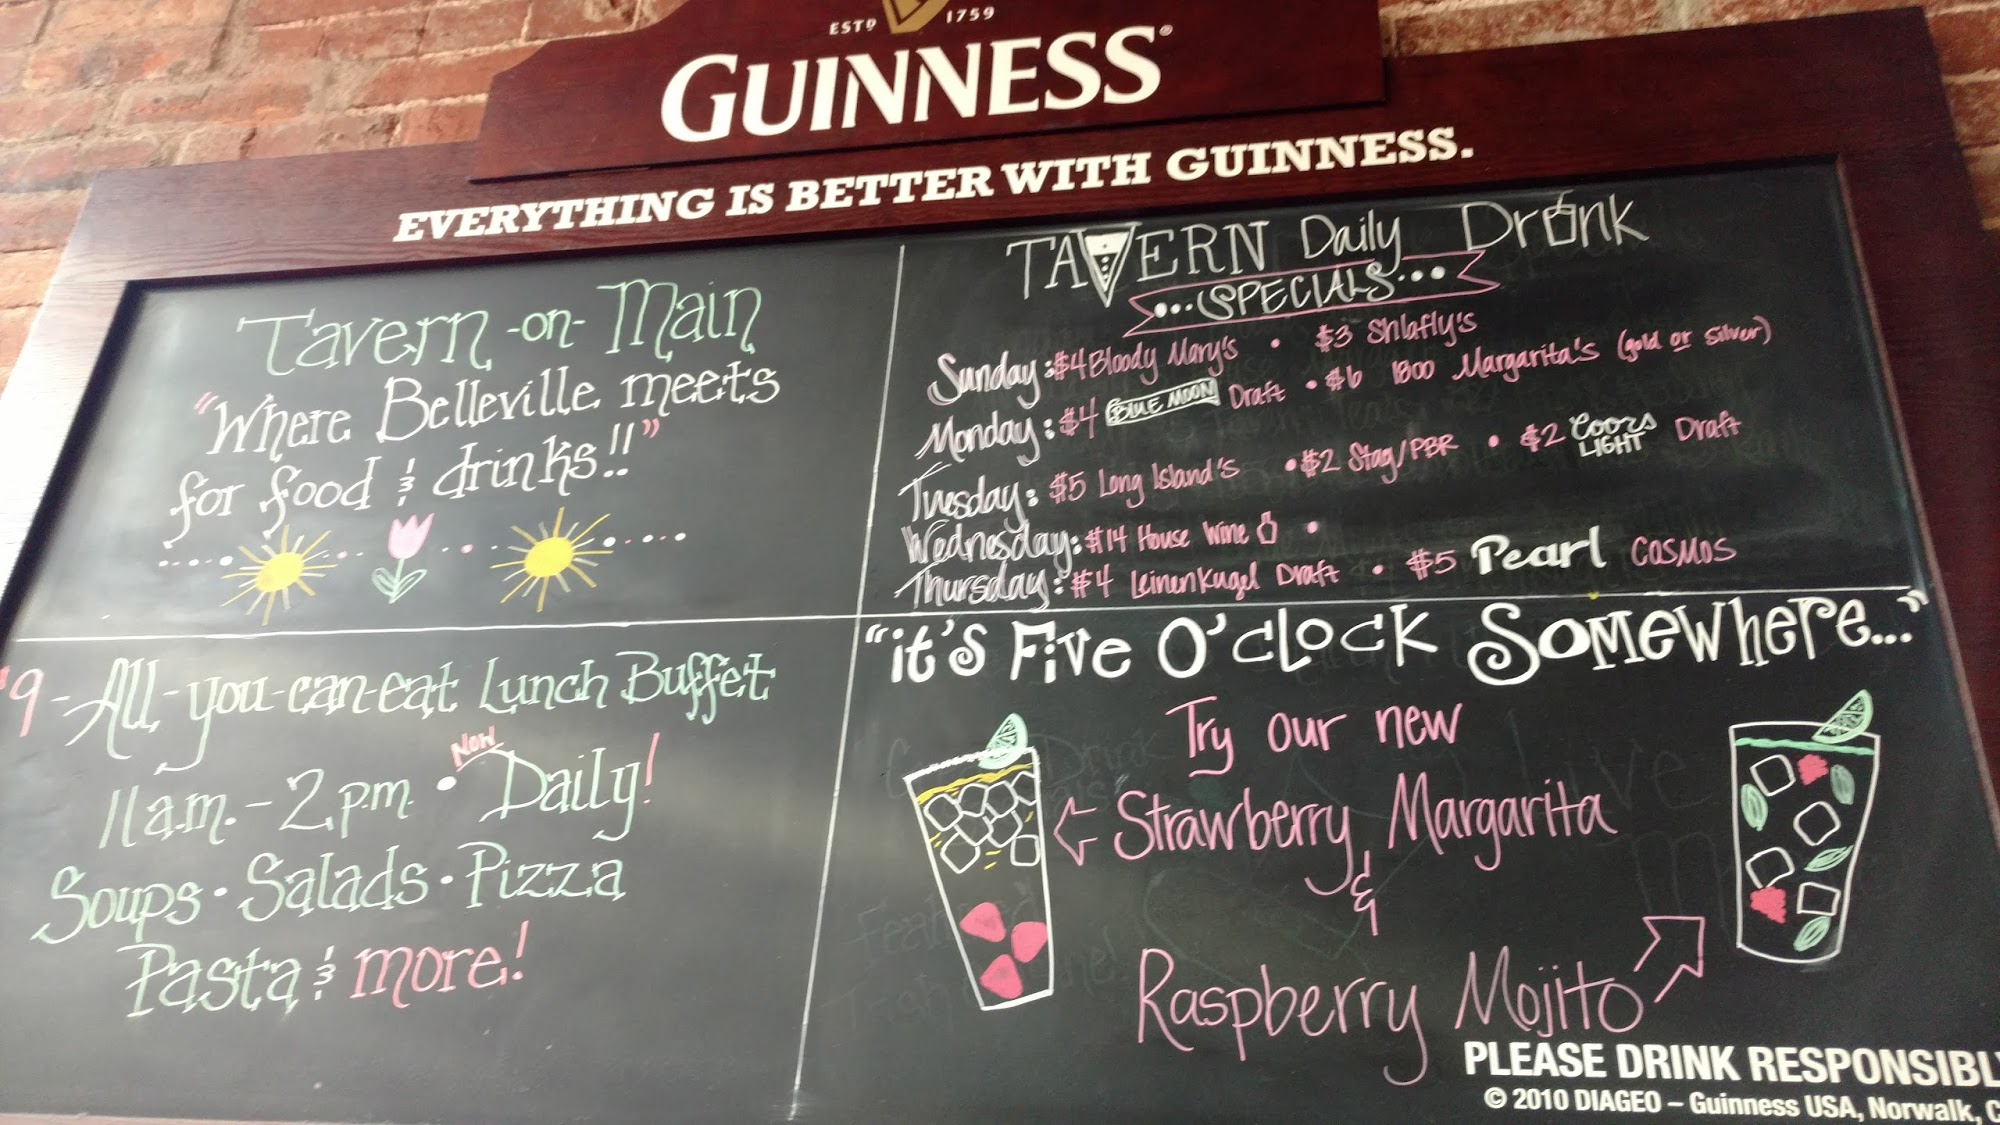 ESTD 1759
GUINNESS®
EVERYTHING IS BETTER WITH GUINNESS.
Tavern -on- Main
"Where Belleville meets
for food & drinks!!"
TAVERN Daily Drink
...SPECIALS...
Sunday: $4 Bloody Mary's • $3 Shlafly's
Monday: $4 BLUE MOON Draft • $6 1800 Margarita's (gold or Silver)
Tuesday: $5 Long Island's • $2 Stag/PBR • $2 Coors LIGHT Draft
Wednesday: $14 House Wine •
Thursday: $4 Leinenkugel Draft • $5 Pearl COSMOS
9-All-you-can-eat Lunch Buffet
11a.m. - 2 p.m. • Now Daily!
Soups • Salads • Pizza
Pasta & more!
"it's Five O'clock Somewhere..."
Try our new
Strawberry Margarita
&
Raspberry Mojito
PLEASE DRINK RESPONSIBL
© 2010 DIAGEO – Guinness USA, Norwalk, C